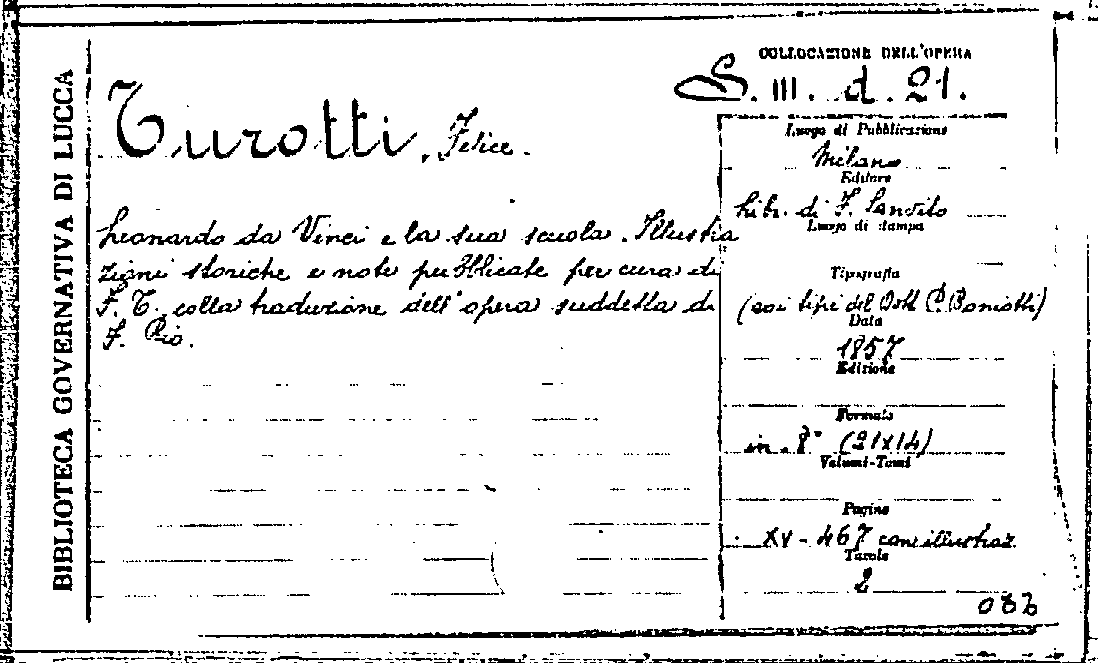 BIBLIOTECA GOVERNATIVA DI LUCCA
COLLOCAZIONE DELL'OPERA
S. III. d. 21.
Turotti, Felice.
Leonardo da Vinci e la sua scuola. Illustra
zioni storiche e note pubblicate per cura di
F. T. colla traduzione dell'opera suddetta di
F. Rio.
Luogo di Pubblicazione
Milano
Editore
Libr. di F. Sanvito
Luogo di stampa
Tipografia
(coi tipi del Dott. C. Boniotti)
Data
1857
Edizione
Formato
in. 8° (21x14)
Volumi-Tomi
Pagine
XV - 467 con illustraz.
Tavole
2
082